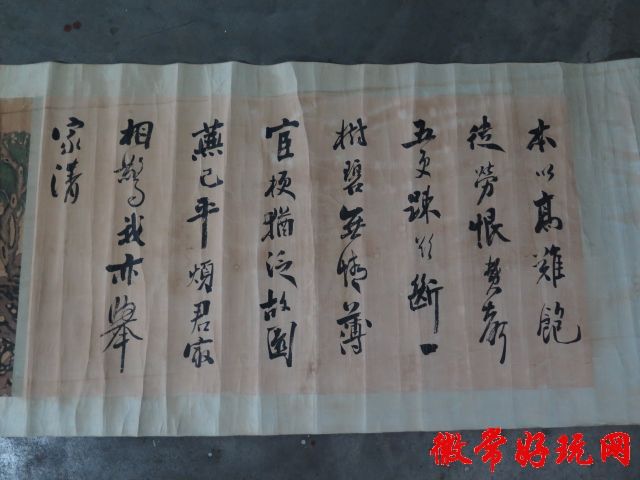 本以高難飽
徒勞恨費聲
五更踈欲斷一
樹碧無情薄
宦梗猶泛故園
蕪已平煩君最
相警我亦舉
家清
徽常好玩网